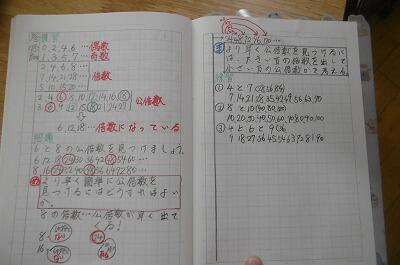 復習
0, 2, 4, 6 … 偶数
1, 3, 5, 7 … 奇数
2, 4, 6, 8 …
7, 14, 21, 28 … 倍数
5, 10, 15, 20 …
公倍数
6, 12, 18 … 倍数になっている
問題
6と8の公倍数を見つけましょう。
6 12 18 24 30 36 42 48 54 60 …
8 16 24 32 40 48 56 64 72 80 …
め より早く簡単に公倍数を
見つけるにはどうすればよいか。
8の倍数…公倍数が早く出てくる!
8
24
16
24 48
より早く公倍数を見つけるに
は、大きい方の倍数を出して
小さい方の倍数か考える。
練習
① 4と7 (28 56 84)
7 14 21 28 35 42 49 56 63 70
② 8と10 (40, 80,
10, 20, 30, 40, 50, 60, 70, 80, 90, 100
③ 4と6と9 (36
9 18 27 36 45 54 63 72 81 90